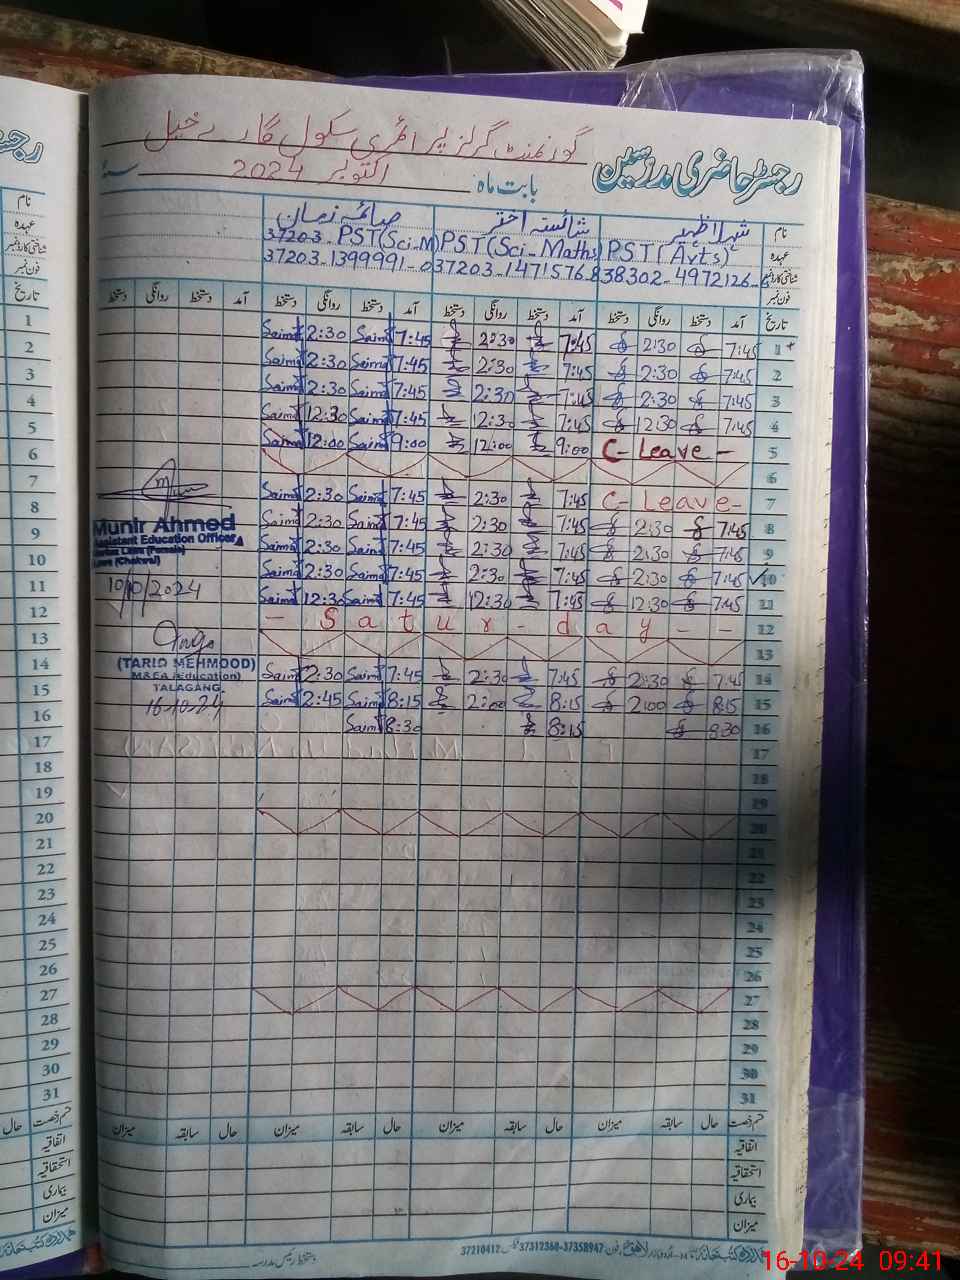 رجسٹر حاضری مدرسین
گورنمنٹ گرلز پرائمری سکول
بابت ماہ اکتوبر 2024
نام شائستہ اختر صائمہ زمان
عہدہ PST (Arts) PST (Sci_Maths) PST (Sci_M)
شناختی کارڈ نمبر 38302-4972126- 37203-1471576-8 37203-1399991-0
فون نمبر
تاریخ آمد دستخط روانگی دستخط آمد دستخط روانگی دستخط آمد دستخط روانگی دستخط آمد دستخط روانگی دستخط
1 7:45 2:30 7:45 2:30 7:45 Saima 2:30 Saima
2 7:45 2:30 7:45 2:30 7:45 Saima 2:30 Saima
3 7:45 2:30 7:45 2:30 7:45 Saima 2:30 Saima
4 7:45 12:30 7:45 12:30 7:45 Saima 12:30 Saima
5 C- Leave - 9:00 12:00 9:00 Saima 12:00 Saima
6
7 C- Leave- 7:45 2:30 7:45 Saima 2:30 Saima
8 7:45 2:30 7:45 2:30 7:45 Saima 2:30 Saima
9 7:45 2:30 7:45 2:30 7:45 Saima 2:30 Saima
10 7:45 2:30 7:45 2:30 7:45 Saima 2:30 Saima
11 7:45 12:30 7:45 12:30 7:45 Saima 12:30 Saima
12 - S a t u r - d a y - -
13
14 7:45 2:30 7:45 2:30 7:45 Saima 2:30 Saima
15 8:15 2:00 8:15 2:00 8:15 Saima 2:45 Saima
16 8:30 8:15 8:30 Saima
17
18
19
20
21
22
23
24
25
26
27
28
29
30
31
Munir Ahmed
Assistant Education Officer
Markaz Lawa (Female)
Lawa (Chakwal)
10/10/2024
(TARIQ MEHMOOD)
M&EA (Education)
TALAGANG.
16-10-24
قسم رخصت حال سابقہ میزان حال سابقہ میزان حال سابقہ میزان حال سابقہ میزان
اتفاقیہ
استحقاقیہ
بیماری
میزان
دستخط رئیس مدرسہ
37210412 37312360-37358947
نام
عہدہ
شناختی کارڈ نمبر
فون نمبر
تاریخ
1
2
3
4
5
6
7
8
9
10
11
12
13
14
15
16
17
18
19
20
21
22
23
24
25
26
27
28
29
30
31
قسم رخصت حال
اتفاقیہ
استحقاقیہ
بیماری
میزان
16-10-24 09:41